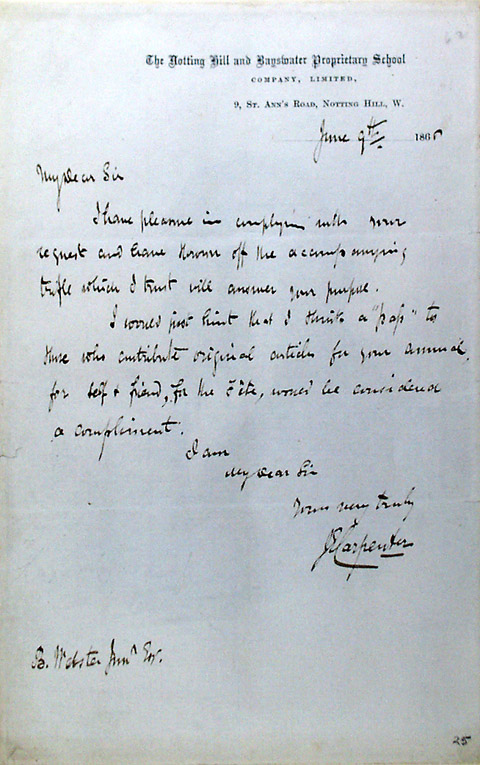 The Notting Hill and Bayswater Proprietary School
COMPANY, LIMITED,
9, ST. ANN'S ROAD, NOTTING HILL, W.
June 9th 1865
My Dear Sir
I have pleasure in complying with your
request and have thrown off the accompanying
trifle which I trust will answer your purpose.
I would just hint that I think a "pass" to
those who contribute original articles for your annual,
for self & friend, for the Fête, would be considered
a compliment.
I am
My Dear Sir
Yours very truly
JE Carpenter
B. Webster Junr Esr.
25